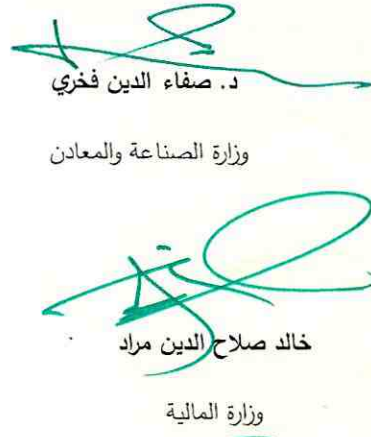 د. صفاء الدين فخري
وزارة الصناعة والمعادن
خالد صلاح الدين مراد
وزارة المالية